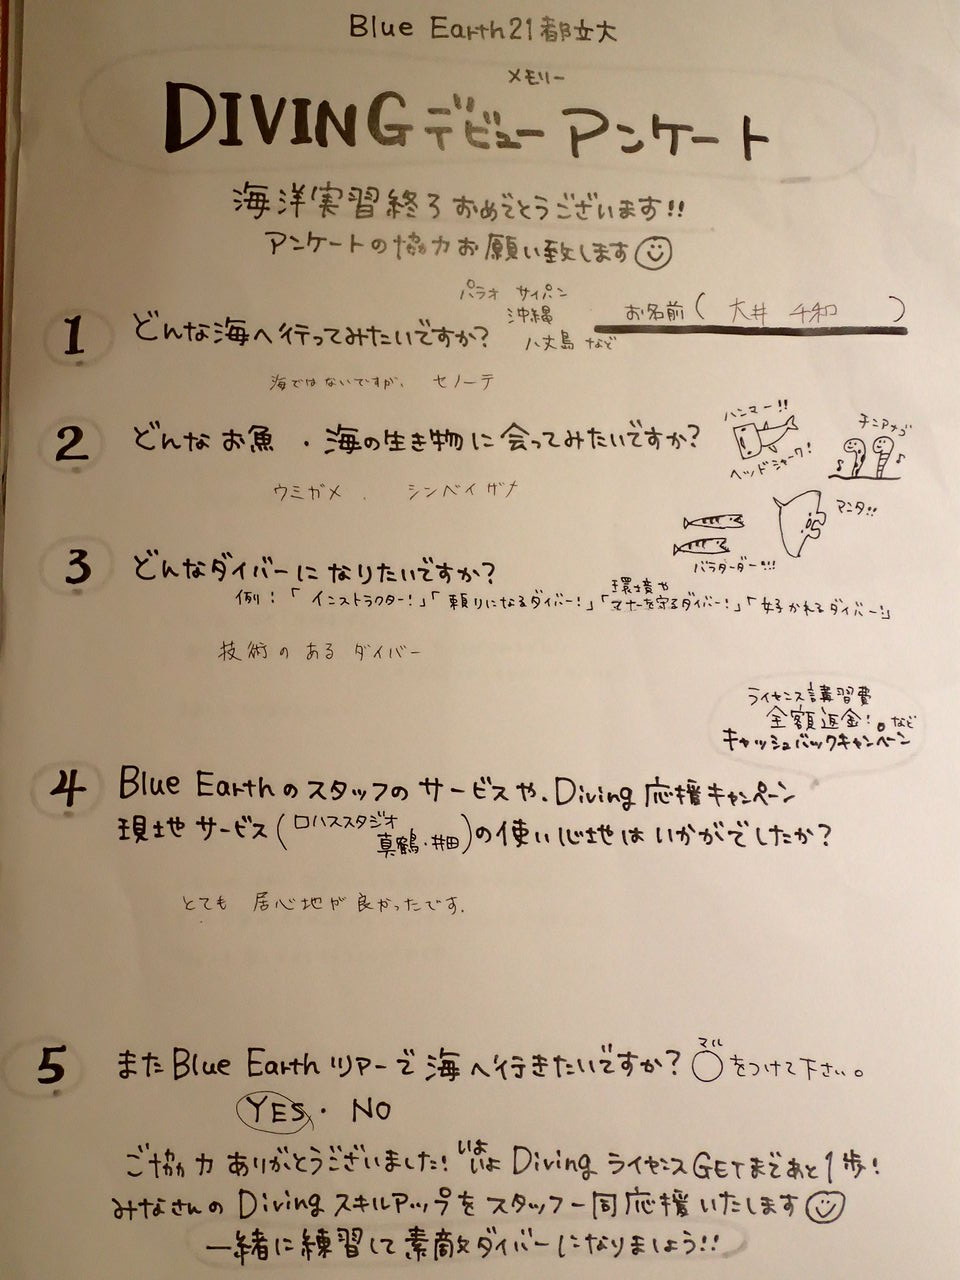 Blue Earth21都立大
メモリー
DIVINGデビューアンケート
海洋実習終了おめでとうございます!!
アンケートの協力お願い致します
パラオ サイパン
沖縄
八丈島 など
お名前( 大井 千和 )
1 どんな海へ行ってみたいですか?
海ではないですが、 セノーテ
2 どんなお魚・海の生き物に会ってみたいですか?
ハンマー!!
ヘッドシャーク!
チンアナゴ
ウミガメ、 シンベイザメ
マンタ!!
バラクーダー!!!
3 どんなダイバーになりたいですか?
例:「インストラクター!」「頼りになるダイバー!」「環境やマナーを守るダイバー!」「好かれるダイバー!」
技術のあるダイバー
ライセンス講習費
全額返金!など
キャッシュバックキャンペーン
4 Blue Earthのスタッフのサービスや、Diving応援キャンペーン
現地サービス(ロハススタジオ 真鶴・井田)の使い心地はいかがでしたか?
とても 居心地が良かったです.
5 またBlue Earthツアーで海へ行きたいですか?○をつけて下さい。
マル
YES・NO
ご協力ありがとうございました!いよいよDivingライセンスGETまであと1歩!
みなさんのDivingスキルアップをスタッフ一同応援いたします
一緒に練習して素敵ダイバーになりましょう!!